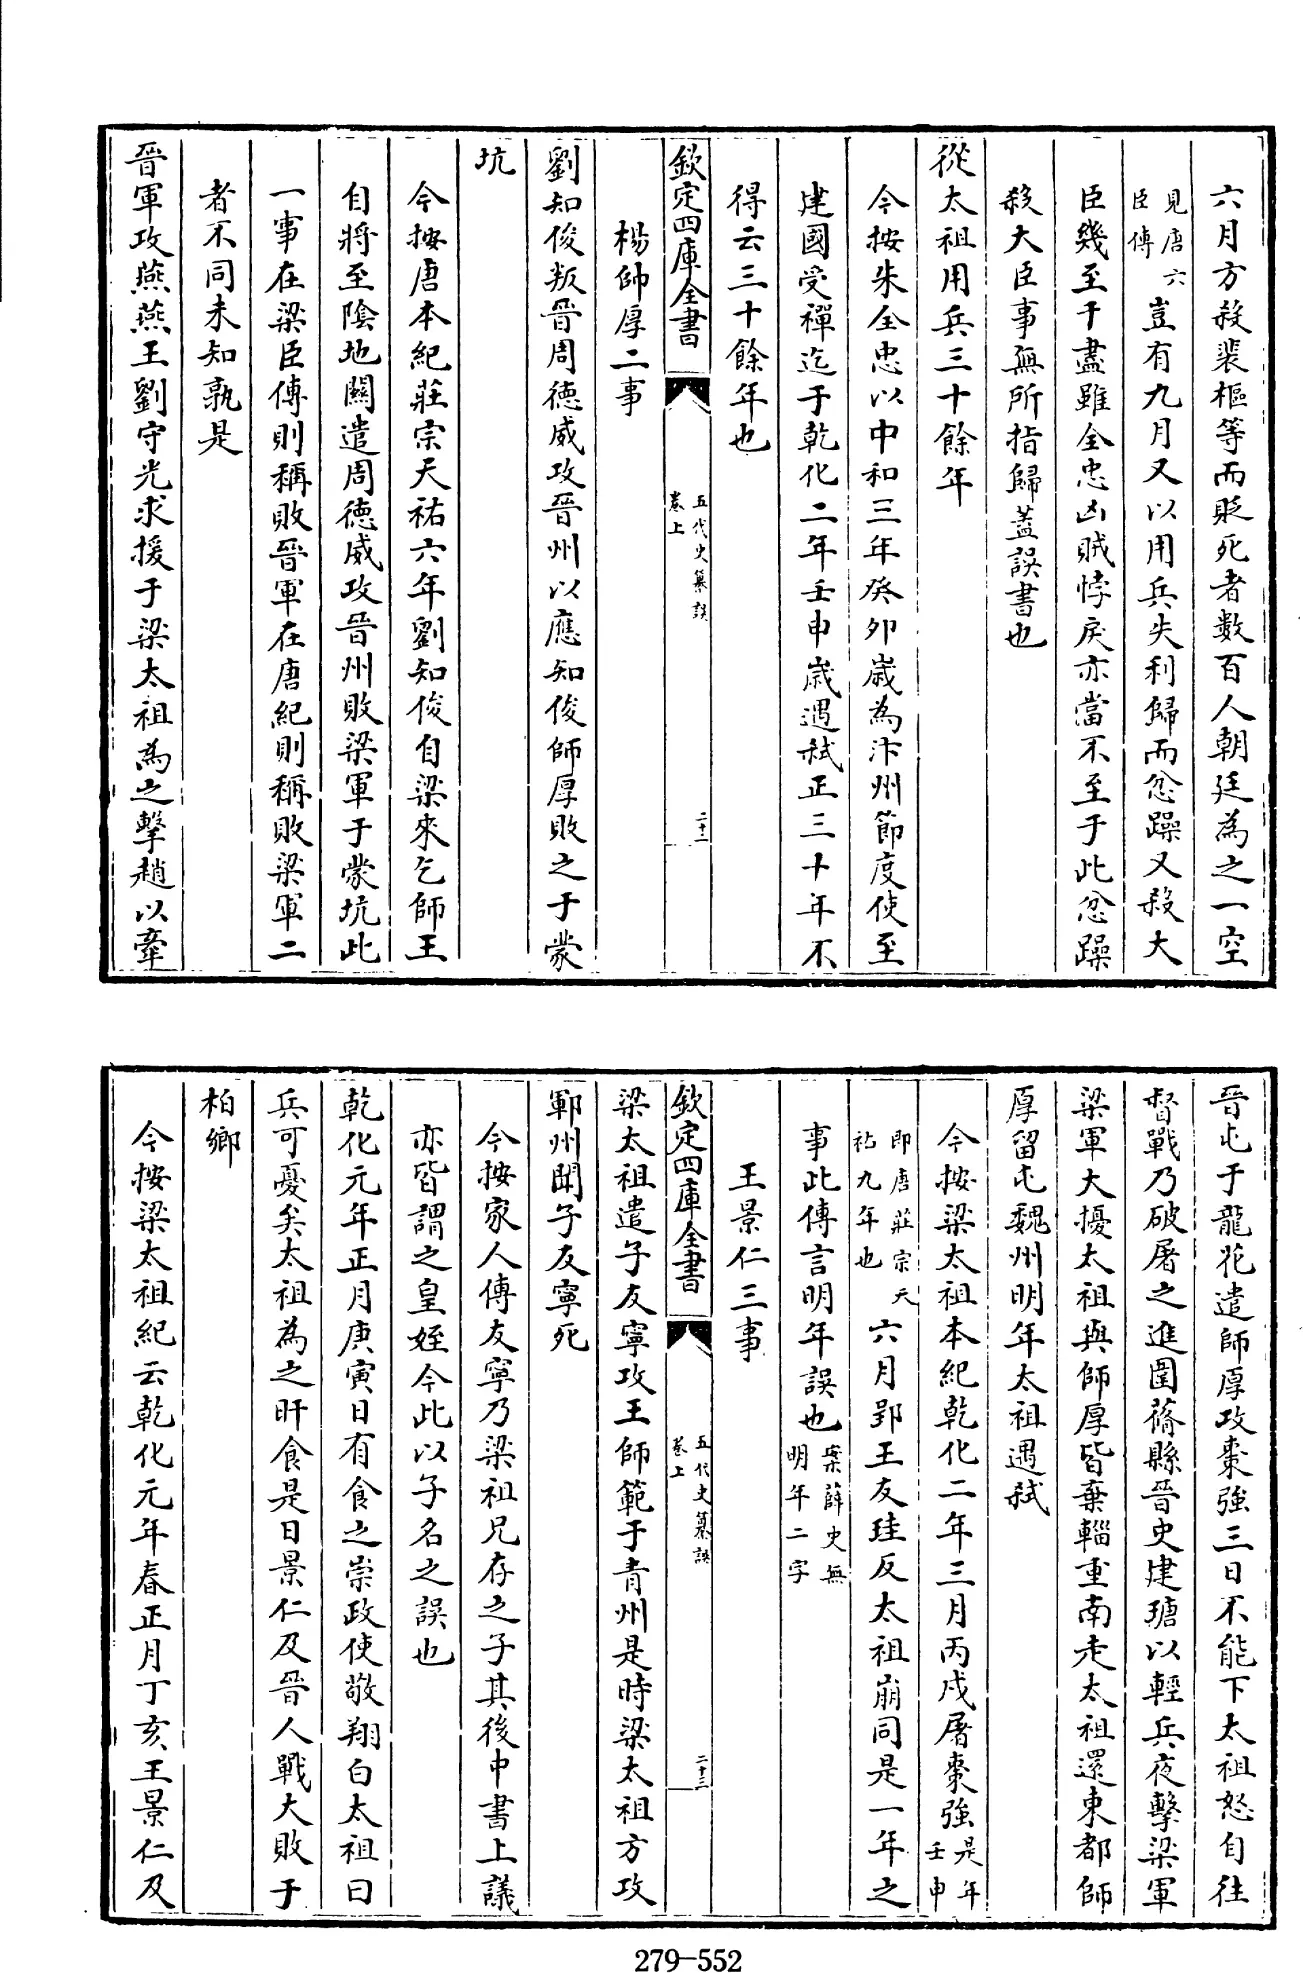 六月方殺裴樞等而貶死者數百人朝廷為之一空
見唐六臣傳豈有九月又以用兵失利歸而忿躁又殺大
臣幾至于盡雖全忠凶賊悖戾亦當不至于此忿躁
殺大臣事無所指歸蓋誤書也
從太祖用兵三十餘年
今按朱全忠以中和三年癸卯歲為汴州節度使至
建國受禪迄于乾化二年壬申歲遇弑正三十年不
得云三十餘年也
欽定四庫全書 五代史纂誤 卷上 二十二
楊師厚二事
劉知俊叛晉周德威攻晉州以應知俊師厚敗之于蒙
坑
今按唐本紀莊宗天祐六年劉知俊自梁來乞師王
自將至陰地關遣周德威攻晉州敗梁軍于蒙坑此
一事在梁臣傳則稱敗晉軍在唐紀則稱敗梁軍二
者不同未知孰是
晉軍攻燕燕王劉守光求援于梁太祖為之擊趙以牽
晉屯于龍花遣師厚攻棗強三日不能下太祖怒自往
督戰乃破屠之進圍蓨縣晉史建瑭以輕兵夜擊梁軍
梁軍大擾太祖與師厚皆棄輜重南走太祖還東都師
厚留屯魏州明年太祖遇弑
今按梁太祖本紀乾化二年三月丙戌屠棗強是年壬申
即唐莊宗天祐九年也六月郢王友珪反太祖崩同是一年之
事此傳言明年誤也案薛史無明年二字
王景仁三事
欽定四庫全書 五代史纂誤 卷上 二十三
梁太祖遣子友寧攻王師範于青州是時梁太祖方攻
鄆州聞子友寧死
今按家人傳友寧乃梁祖兄存之子其後中書上議
亦皆謂之皇姪今此以子名之誤也
乾化元年正月庚寅日有食之崇政使敬翔白太祖曰
兵可憂矣太祖為之旰食是日景仁及晉人戰大敗于
柏鄉
今按梁太祖紀云乾化元年春正月丁亥王景仁及
279-552